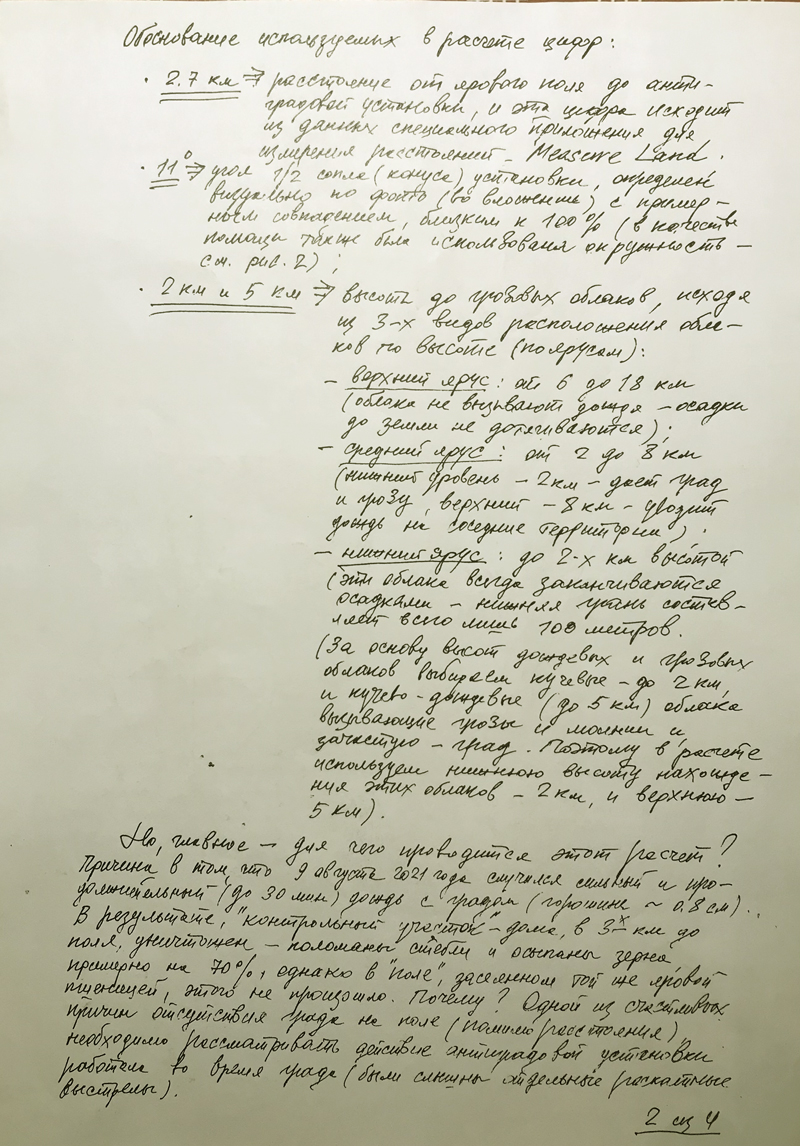 Обоснование используемых в расчете цифр:
· 2.7 км ⇒ расстояние от ярового поля до анти-
градовой установки, и эта цифра исходит
из данных специального приложения для
измерения расстояний - Measure Land.
· 11° ⇒ угол 1/2 сопла (конуса) установки, определен
визуально по фото (во вложении) с пример-
ным совпадением, близким к 100% (в качестве
помощи также была использована окружность -
см. рис. 2);
· 2 км и 5 км ⇒ высоты до грозовых облаков, исходя
из 3-х видов расположения обла-
ков по высоте (по ярусам):
- верхний ярус: от 6 до 18 км
(облака не вызывают дождя - осадки
до земли не дотягиваются);
- средний ярус: от 2 до 8 км
(нижний уровень - 2 км - дает град
и грозу, верхний - 8 км - увозит
дождь на соседние территории);
- нижний ярус: до 2-х км высотой
(эти облака всегда заканчиваются
осадками - нижняя грань состав-
ляет всего лишь 100 метров.
(За основу высот дождевых и грозовых
облаков выбираем кучевые - до 2 км,
и кучево-дождевые (до 5 км) облака
вызывающие грозы и молнии и,
зачастую - град. Поэтому в расчете
используем нижнюю высоту нахожде-
ния этих облаков - 2 км, и верхнюю -
5 км).
Но, главное - для чего проводится этот расчет?
Причина в том, что 9 августа 2021 года случился сильный и про-
должительный (до 30 мин) дождь с градом (горошине ~ 0.8 см).
В результате, "контрольный участок" - дома, в 3-х км до
поля, уничтожен - поломаны стебли и осыпаны зерна
примерно на 70%, однако в "поле", засеянном той же яровой
пшеницей, этого не произошло. Почему? Одной из счастливых
причин отсутствия града на поле (помимо расстояния)
необходимо рассматривать действие антиградовой установки
работала во время града (были слышны отдельные раскатные
выстрелы).
2 из 4